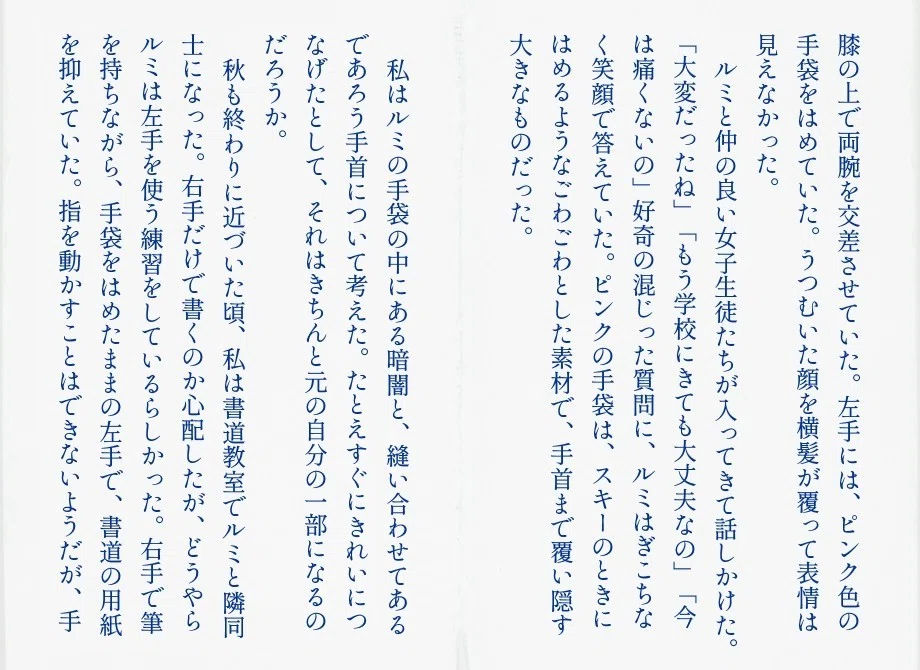 膝の上で両腕を交差させていた。左手には、ピンク色の
手袋をはめていた。うつむいた顔を横髪が覆って表情は
見えなかった。
　ルミと仲の良い女子生徒たちが入ってきて話しかけた。
「大変だったね」「もう学校にきても大丈夫なの」「今
は痛くないの」好奇の混じった質問に、ルミはぎこちな
く笑顔で答えていた。ピンクの手袋は、スキーのときに
はめるようなごわごわとした素材で、手首まで覆い隠す
大きなものだった。
　私はルミの手袋の中にある暗闇と、縫い合わせてある
であろう手首について考えた。たとえすぐにきれいにつ
なげたとして、それはきちんと元の自分の一部になるの
だろうか。
　秋も終わりに近づいた頃、私は書道教室でルミと隣同
士になった。右手だけで書くのか心配したが、どうやら
ルミは左手を使う練習をしているらしかった。右手で筆
を持ちながら、手袋をはめたままの左手で、書道の用紙
を抑えていた。指を動かすことはできないようだが、手